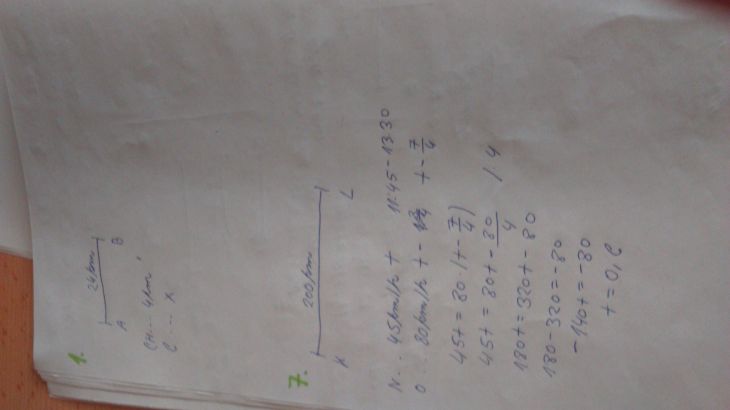 1.
24km
A B
CH... 4km
C ... x
7.
200km
K L
N... 45km/h t 11:45-13:30
O ... 80km/h t- t-7/4
45t = 80·(t-7/4)
45t = 80t - 80/4 /·4
180t = 320t - 80
180-320=-80
-140t=-80
t=0,